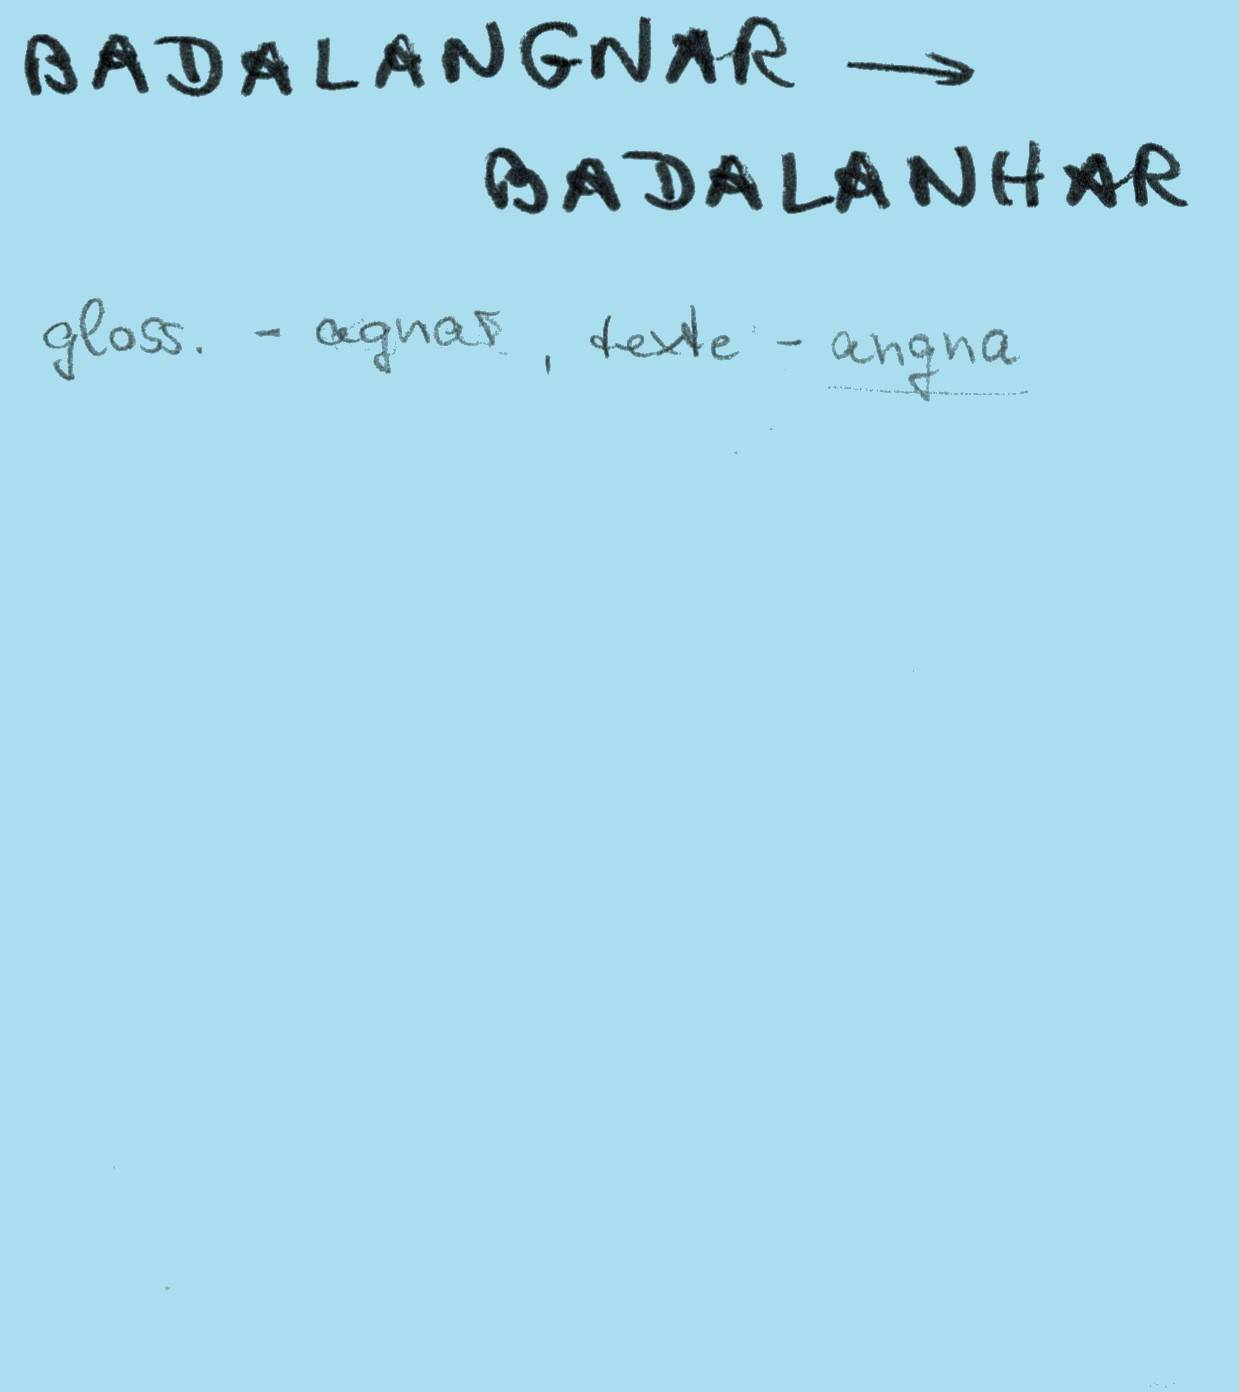 BADALANGNAR →
BADALANHAR
gloss. - agnar, texte - angna